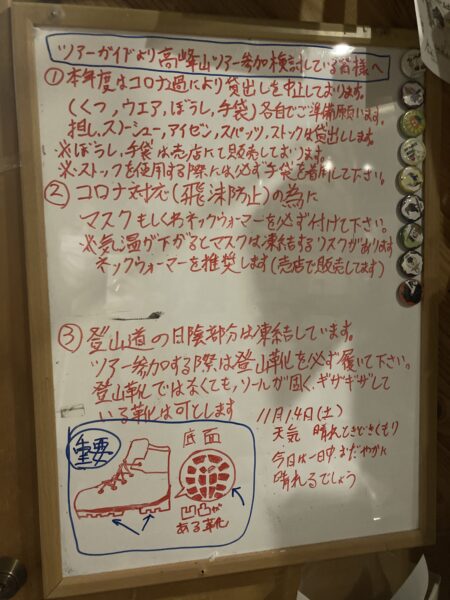 ツアーガイドより高峰山ツアー参加検討している皆様へ
①本年度はコロナ過により貸出しを中止しております。
(くつ,ウエア,ぼうし,手袋)各自でご準備願います。
担し,スノーシュー,アイゼン,スパッツ,ストックは貸出しします。
※ぼうし,手袋は売店にて販売しております。
※ストックを使用する際には必ず手袋を着用して下さい。
②コロナ対応(飛沫防止)の為に
マスクもしくわネックウォーマーを必ず付けて下さい。
※気温が下がるとマスクは凍結するリスクがあります
ネックウォーマーを推奨します(売店で販売してます)
③登山道の日陰部分は凍結しています。
ツアー参加する際は登山靴を必ず履いて下さい。
登山靴ではなくても,ソールが固く,ギザギザして
いる靴は可とします
11月14日(土)
天気 晴れときどきくもり
今日は一日中おだやかに
晴れるでしょう
重要
底面
凹凸が
ある靴